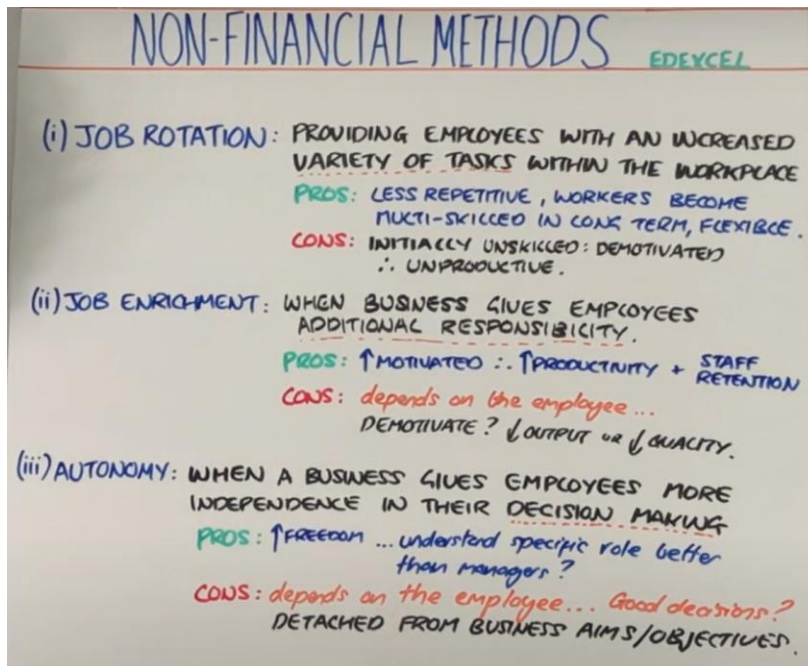 NON-FINANCIAL METHODS EDEXCEL
(i) JOB ROTATION: PROVIDING EMPLOYEES WITH AN INCREASED
VARIETY OF TASKS WITHIN THE WORKPLACE
PROS: LESS REPETITIVE, WORKERS BECOME
MULTI-SKILLED IN LONG TERM, FLEXIBLE.
CONS: INITIALLY UNSKILLED: DEMOTIVATED
∴ UNPRODUCTIVE.
(ii) JOB ENRICHMENT: WHEN BUSINESS GIVES EMPLOYEES
ADDITIONAL RESPONSIBILITY.
PROS: ↑MOTIVATED ∴ ↑PRODUCTIVITY + STAFF
RETENTION
CONS: depends on the employee...
DEMOTIVATE? ↓OUTPUT or ↓QUALITY.
(iii) AUTONOMY: WHEN A BUSINESS GIVES EMPLOYEES MORE
INDEPENDENCE IN THEIR DECISION MAKING
PROS: ↑FREEDOM ... understand specific role better
than managers?
CONS: depends on the employee... Good decisions?
DETACHED FROM BUSINESS AIMS/OBJECTIVES.